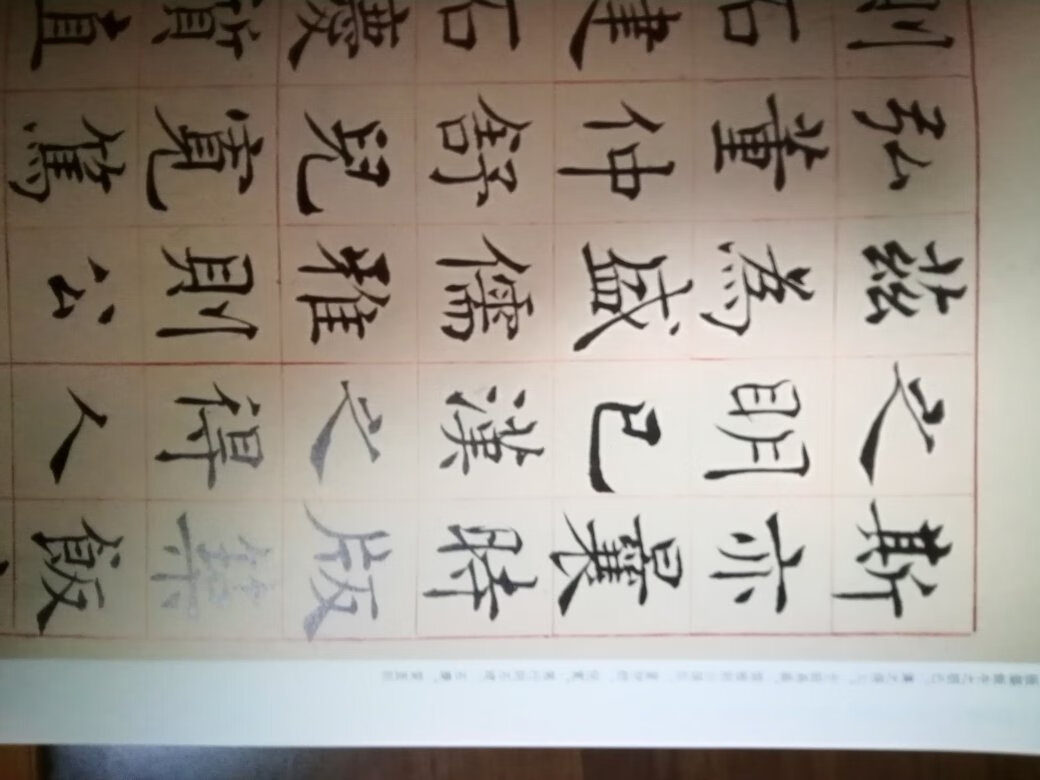 斯亦曩時版築飯
之明已漢之得人
茲為盛儒雅則公
弘董仲舒兒寬篤
則石建石慶質直